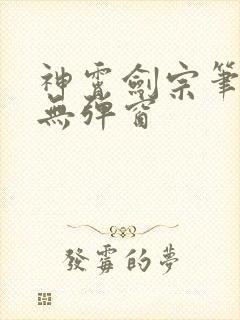 神霄劍宗筆
無彈窗
發霉的夢